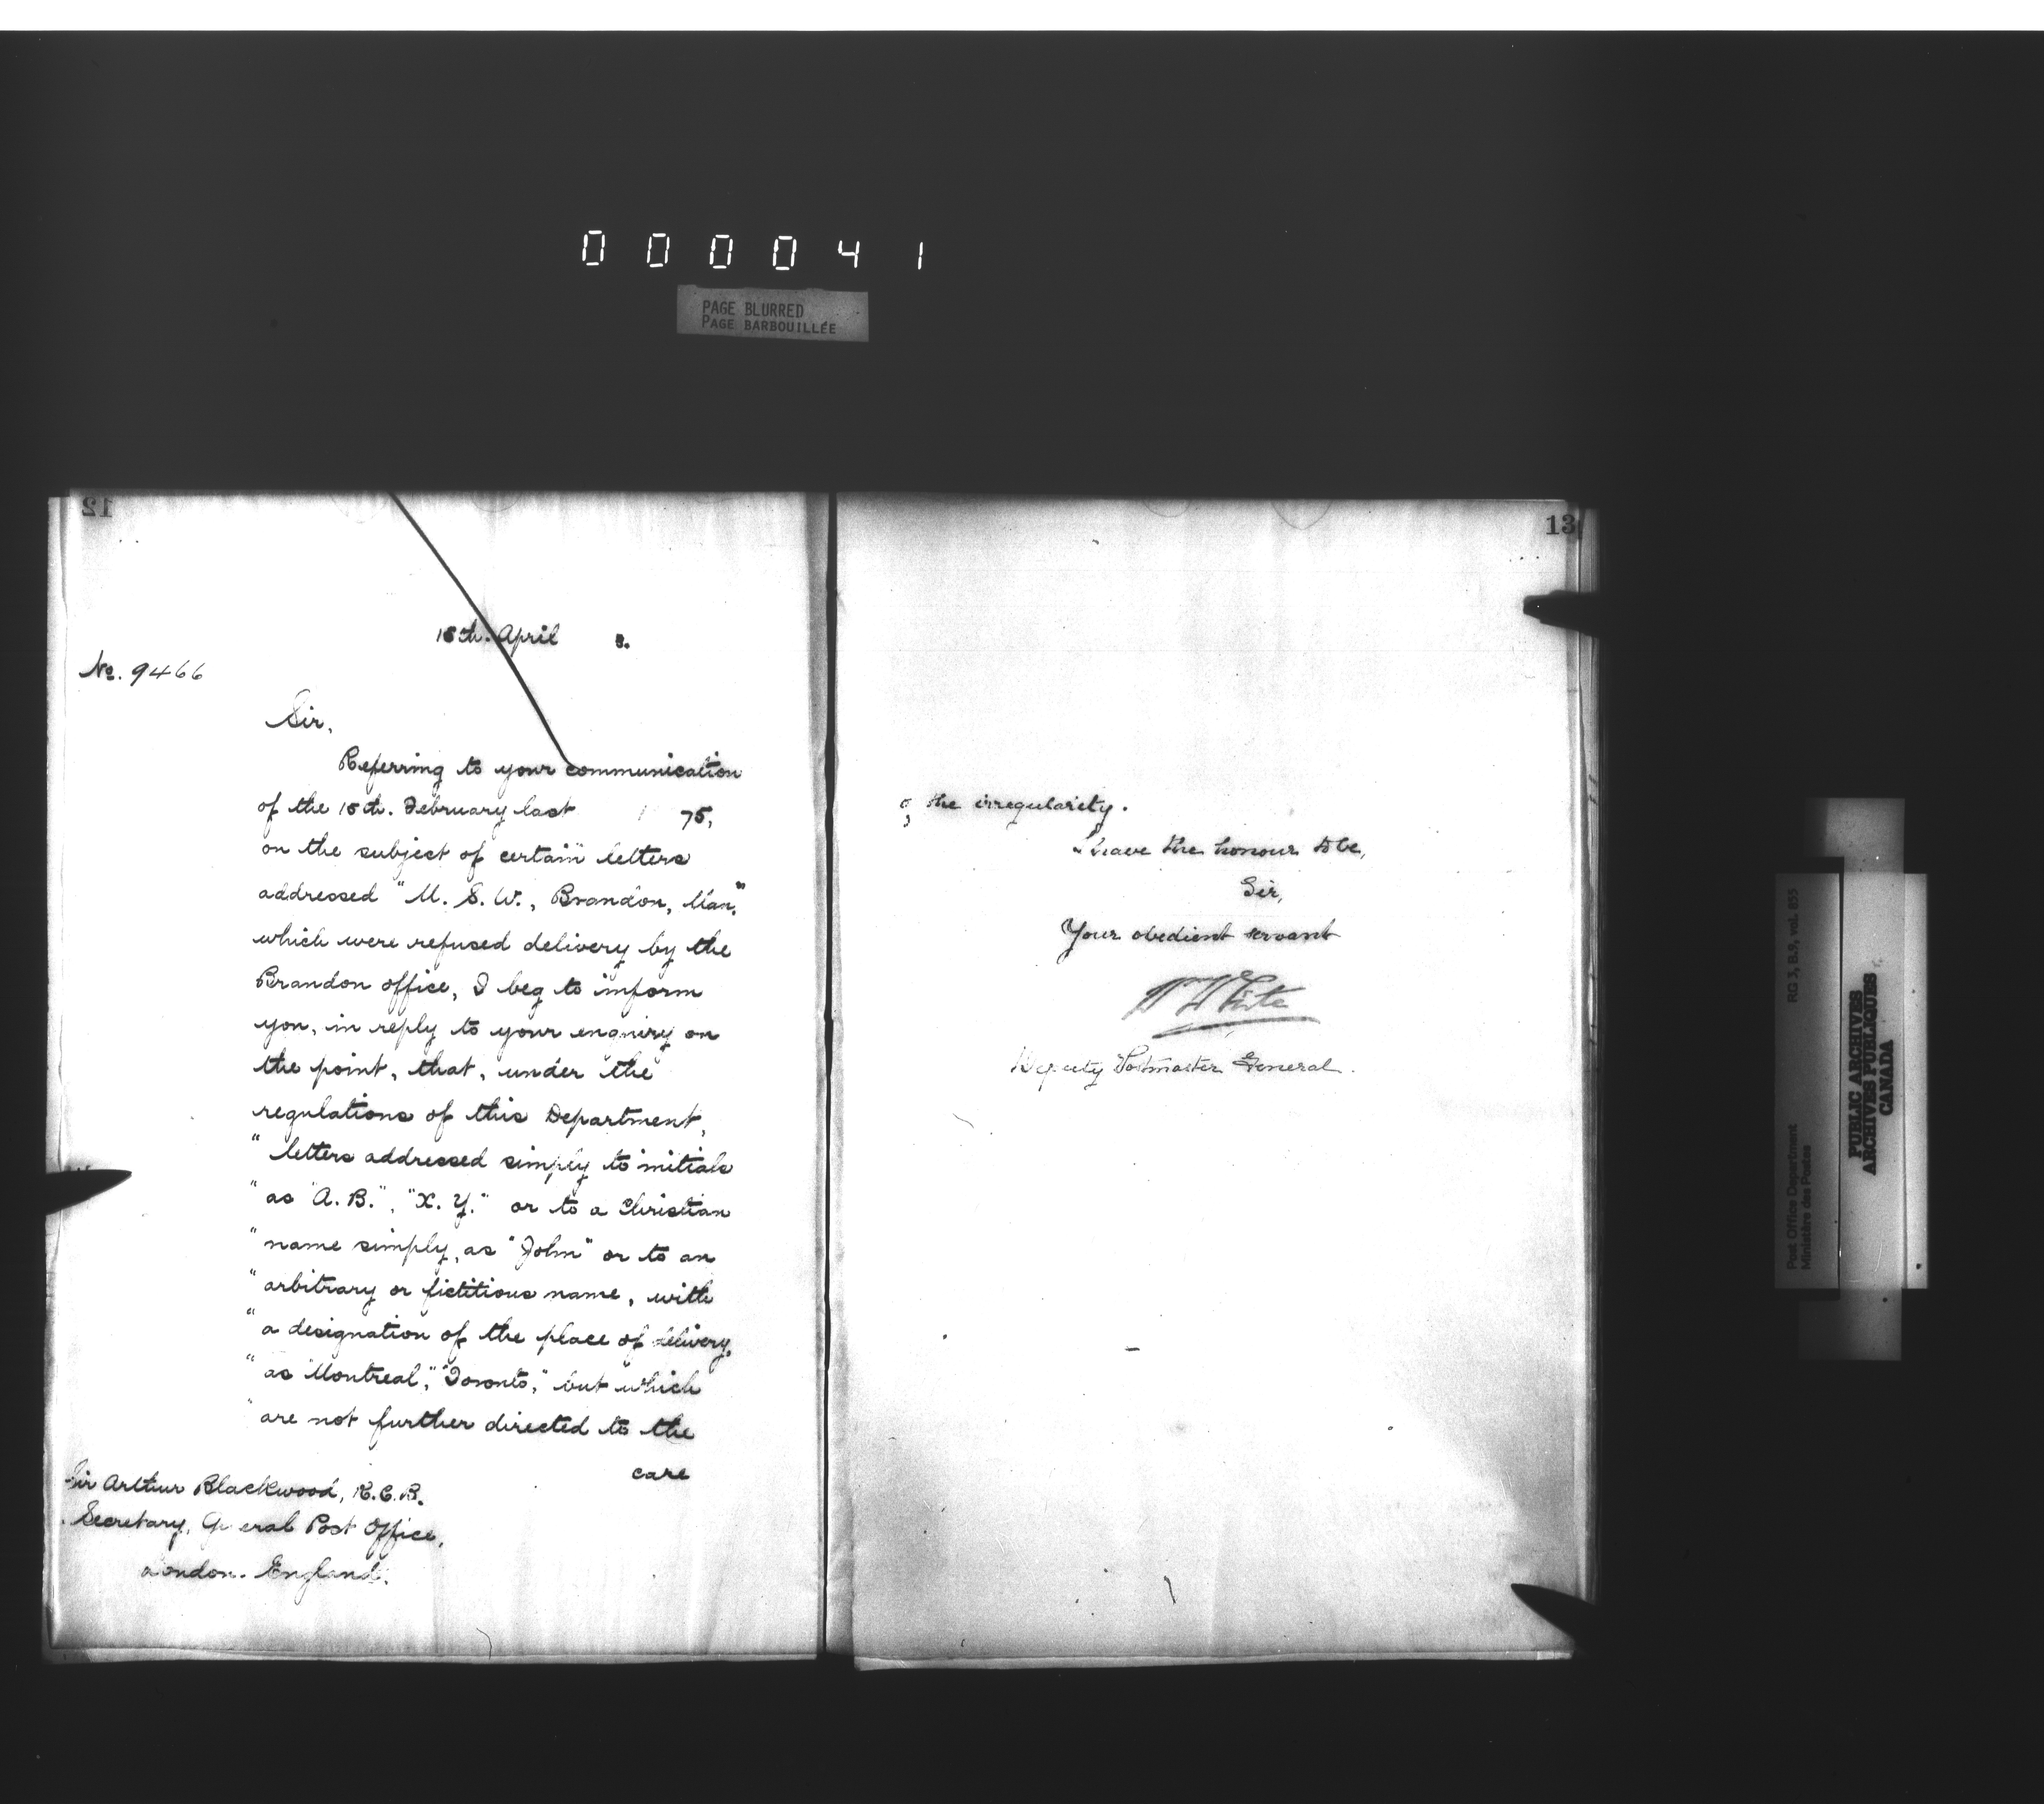 000041
PAGE BLURRED
PAGE BARBOUILLÉE
12
15th. April 8.
No. 9466
Sir,
Referring to your communication
of the 15th. February last 75,
on the subject of certain letters
addressed "M. S. W., Brandon, Man,"
which were refused delivery by the
Brandon office, I beg to inform
you, in reply to your enquiry on
the point, that, under the
regulations of this Department,
" letters addressed simply to initials
" as "A. B.", "X. Y." or to a Christian
" name simply, as "John" or to an
" arbitrary or fictitious name, with
" a designation of the place of delivery,
" as "Montreal," "Toronto," but which
" are not further directed to the
care
Sir Arthur Blackwood, K.C.B.
Secretary, G eral Post Office,
London. England.
13
the irregularity.
I have the honour to be,
Sir,
Your obedient servant
W White
Deputy Postmaster General.
Post Office Department RG 3, B.9, vol. 855
Ministère des Postes
PUBLIC ARCHIVES
ARCHIVES PUBLIQUES
CANADA